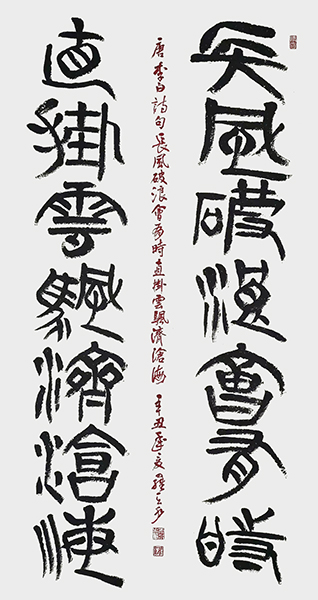 長風破浪會有時
直掛雲颿濟滄海
唐李白詩句長風破浪會有時直掛雲颿濟滄海辛丑夏